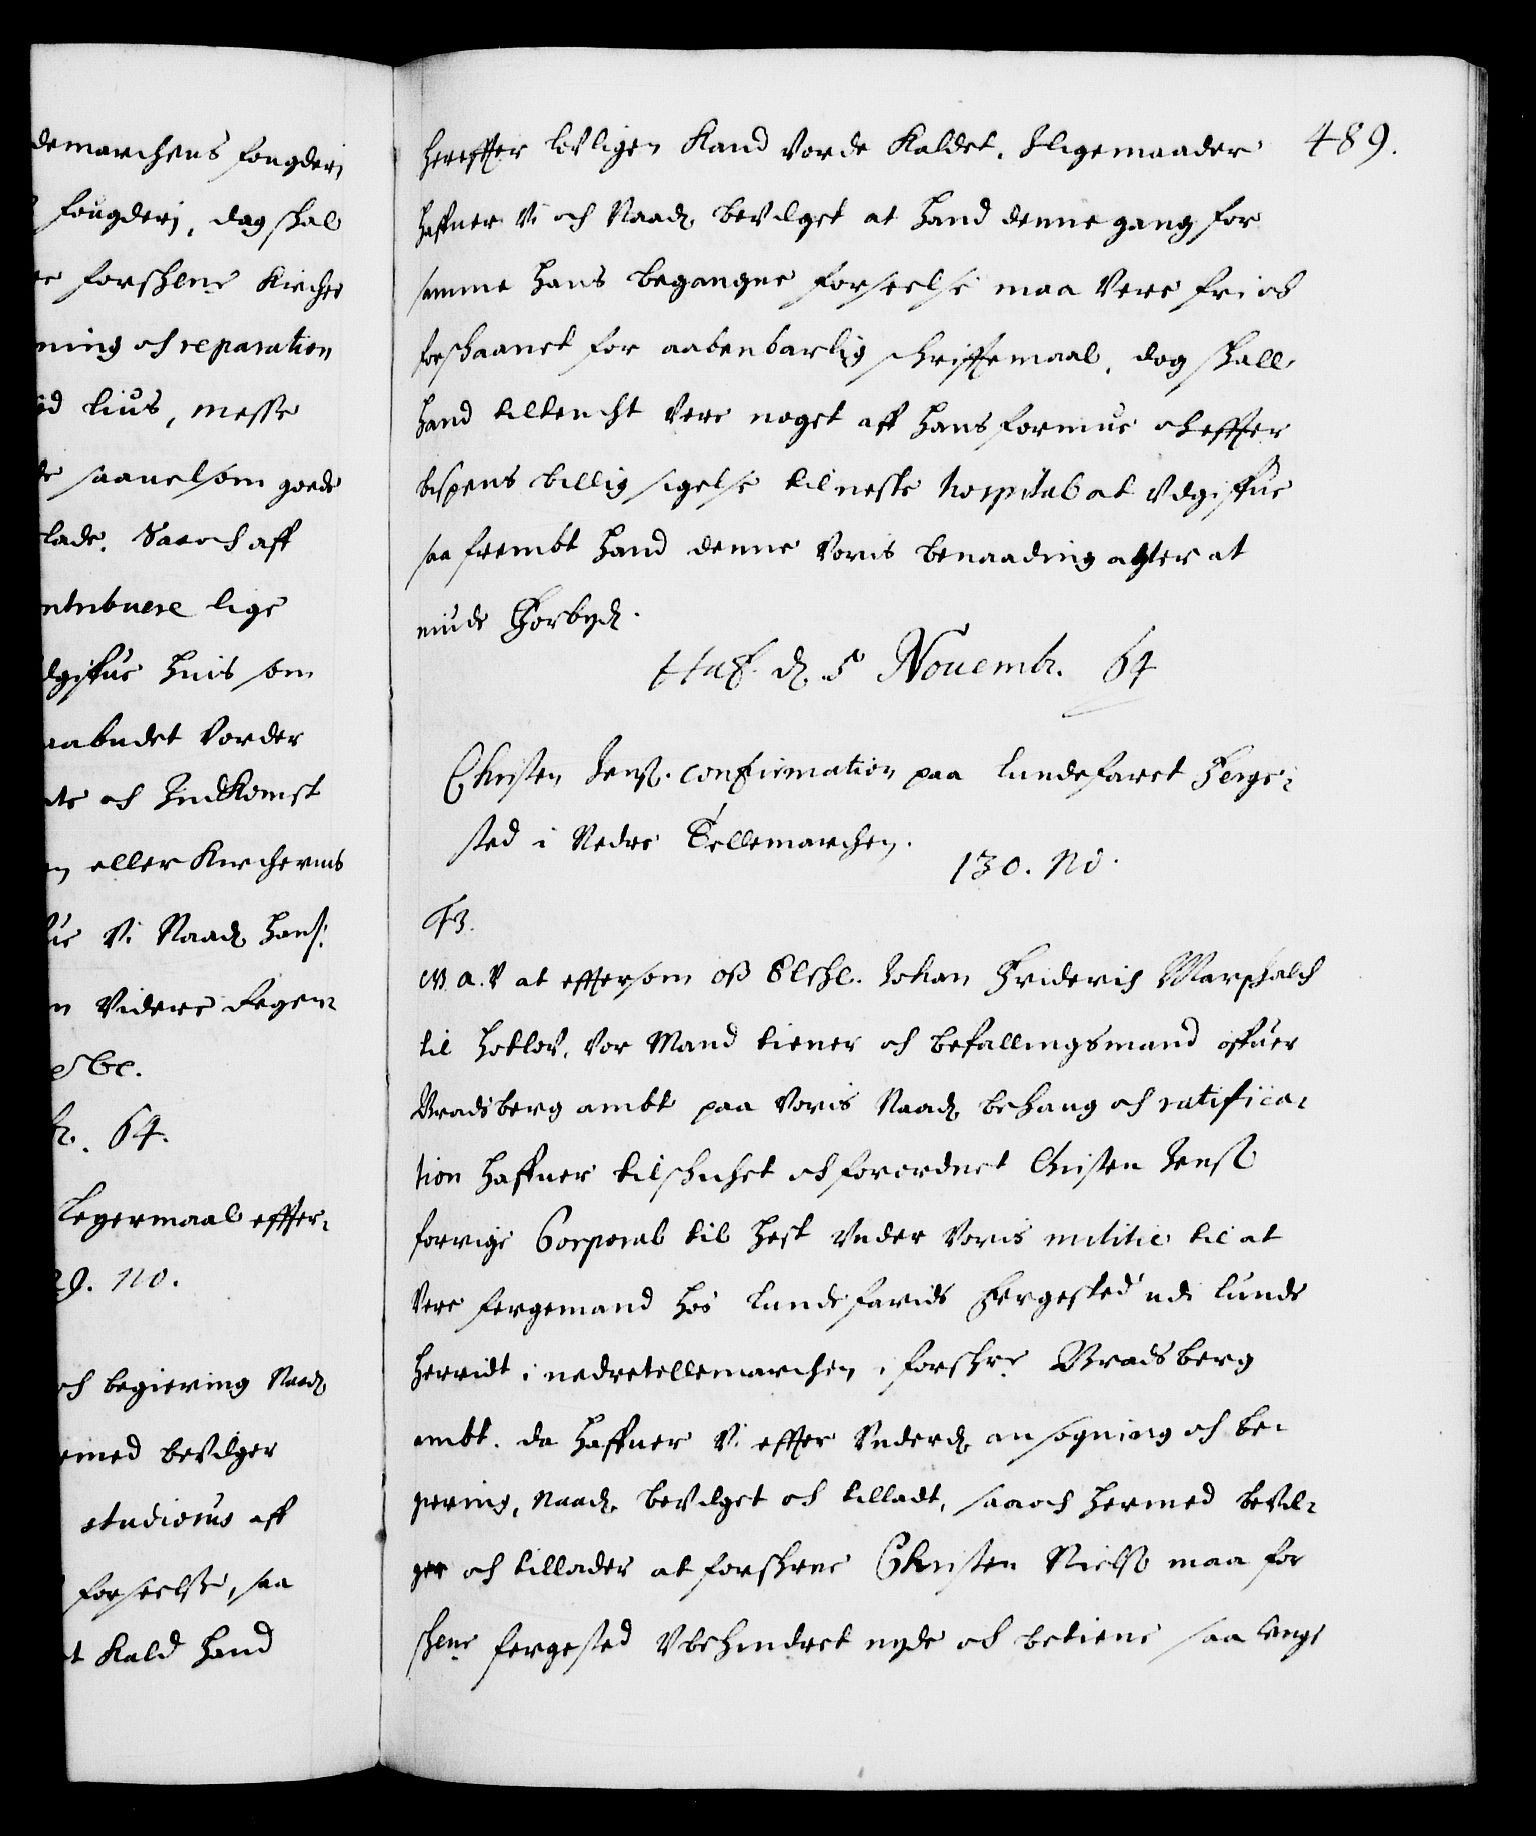 demarchens fougderj
fougderj, dog skal
forskrefne Kircher
ning och reparation
lius, messe
saauelsom goede
lade. Saa och aff
ntribuere lige
dgiffue huis som
aabudet vorder
och Indkomst
eller Kirchernis
Vi Naadst hans
Videre
64.
Legermaal effter-
29. no.
och begiering Naadst
bevilger
studiosus aff
forseelse, saa
Kald hand
489.
hereffter lovligen Kand vorde Kaldet. Sligemaader
haffuer Vi och Naadst bevilget at hand denne gang for
samme hans begangne forseelse maa Vere fri och
forskaanet for aabenbarlig schrifftemaal, dog skall
hand tiltencht Vere noget aff hans formue och effter
bispens billig sigelse til neste hospital at Vdgiffue
saa frembt hand denne Voris benaading agter at
niude Forbydendes
Haf. d. 5 Nouembr. 64
Christen Jens. confirmation paa Lundefaret Ferge-
sted i Nedre Tellemarchen.
130. no.
F3.
G. A. V at effersom oss Elskl. Johan Friderich Marschalch
til Hotlov, vor Mand tiener och befallingsmand offuer
Bradsberg ambt paa Voris Naadst behaug och ratifica-
tion haffuer tilskichet och forordnet Christen Jenss
forrige Corporal til hest Vnder Voris militie til at
Vere fergemand hos Lundefarids Fergested udi Lunde
herridt i nedretellemarchen i forskrefne Bradsberg
ambt. da haffuer Vi effter Vnderd. ansøgning och be-
giering, Naadst bevilget och tilladt, saa och hermed bevil-
ger och tillader at forskrefne Christen Nielss maa for
skrefne fergested Vbehindret nyde och betiene saa lenge